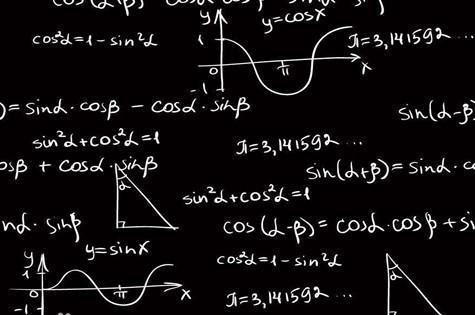 y y=cosx
cos²α=1-sin²α
1
π=3,141592...
0 π x
-1
)=sinα·cosβ - cosα·sinβ
sin(α-β)
sin²α+cos²α=1
π=3,141592...
osβ + cosα·sinβ
sin(α+β)=sinα·c
α
sin²α+cos²α=1
nα·sinβ
cos(α-β)=cosα·cosβ+si
y y=sinx
cos²α=1-sin²α
1
α
0 π x
π=3,141592...
-1